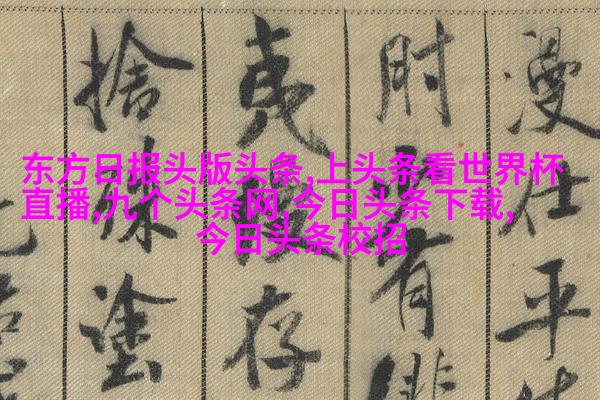 东方日报头版头条,上头条看世界杯
直播,九个头条网,今日头条下载,
今日头条校招
漫仕平
肘少有俳
夷漫存
捨殊塗